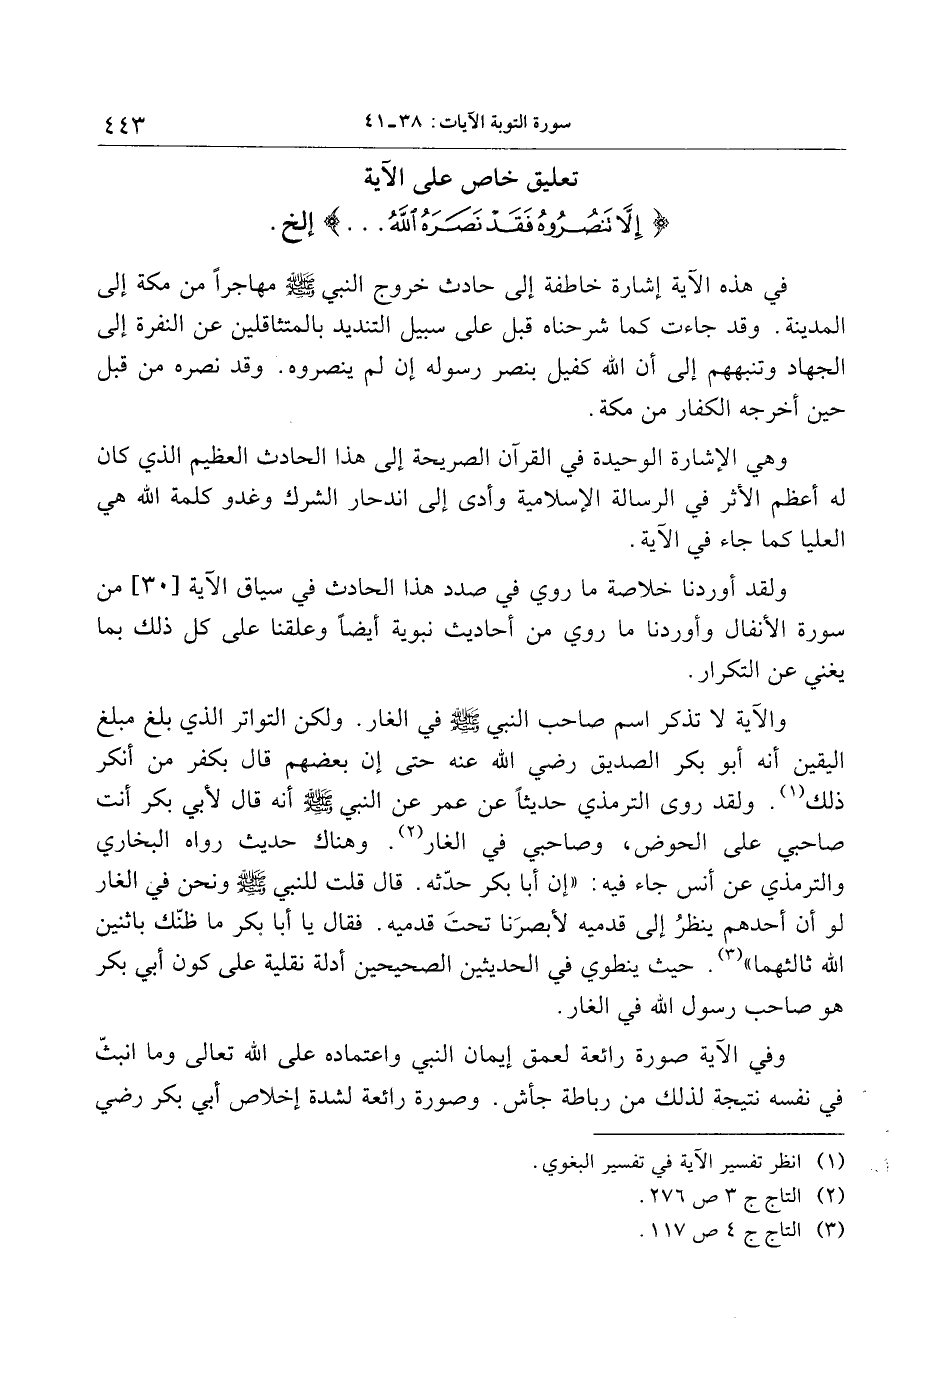 سورة التوبة الآيات: ٣٨-٤١ ٤٤٣
تعليق خاص على الآية
﴿ إِلَّا تَنصُرُوهُ فَقَدْ نَصَرَهُ ٱللَّهُ . . . ﴾ إلخ.
في هذه الآية إشارة خاطفة إلى حادث خروج النبي ﷺ مهاجراً من مكة إلى
المدينة. وقد جاءت كما شرحناه قبل على سبيل التنديد بالمتثاقلين عن النفرة إلى
الجهاد وتنبههم إلى أن الله كفيل بنصر رسوله إن لم ينصروه. وقد نصره من قبل
حين أخرجه الكفار من مكة.
وهي الإشارة الوحيدة في القرآن الصريحة إلى هذا الحادث العظيم الذي كان
له أعظم الأثر في الرسالة الإسلامية وأدى إلى اندحار الشرك وغدو كلمة الله هي
العليا كما جاء في الآية.
ولقد أوردنا خلاصة ما روي في صدد هذا الحادث في سياق الآية [٣٠] من
سورة الأنفال وأوردنا ما روي من أحاديث نبوية أيضاً وعلقنا على كل ذلك بما
يغني عن التكرار.
والآية لا تذكر اسم صاحب النبي ﷺ في الغار. ولكن التواتر الذي بلغ مبلغ
اليقين أنه أبو بكر الصديق رضي الله عنه حتى إن بعضهم قال بكفر من أنكر
ذلك(١). ولقد روى الترمذي حديثاً عن عمر عن النبي ﷺ أنه قال لأبي بكر أنت
صاحبي على الحوض، وصاحبي في الغار(٢). وهناك حديث رواه البخاري
والترمذي عن أنس جاء فيه: «إن أبا بكر حدّثه. قال قلت للنبي ﷺ ونحن في الغار
لو أن أحدهم ينظرُ إلى قدميه لأبصرَنا تحتَ قدميه. فقال يا أبا بكر ما ظنّك باثنين
الله ثالثهما»(٣). حيث ينطوي في الحديثين الصحيحين أدلة نقلية على كون أبي بكر
هو صاحب رسول الله في الغار.
وفي الآية صورة رائعة لعمق إيمان النبي واعتماده على الله تعالى وما انبثّ
في نفسه نتيجة لذلك من رباطة جأش. وصورة رائعة لشدة إخلاص أبي بكر رضي
(١) انظر تفسير الآية في تفسير البغوي.
(٢) التاج ج ٣ ص ٢٧٦.
(٣) التاج ج ٤ ص ١١٧.